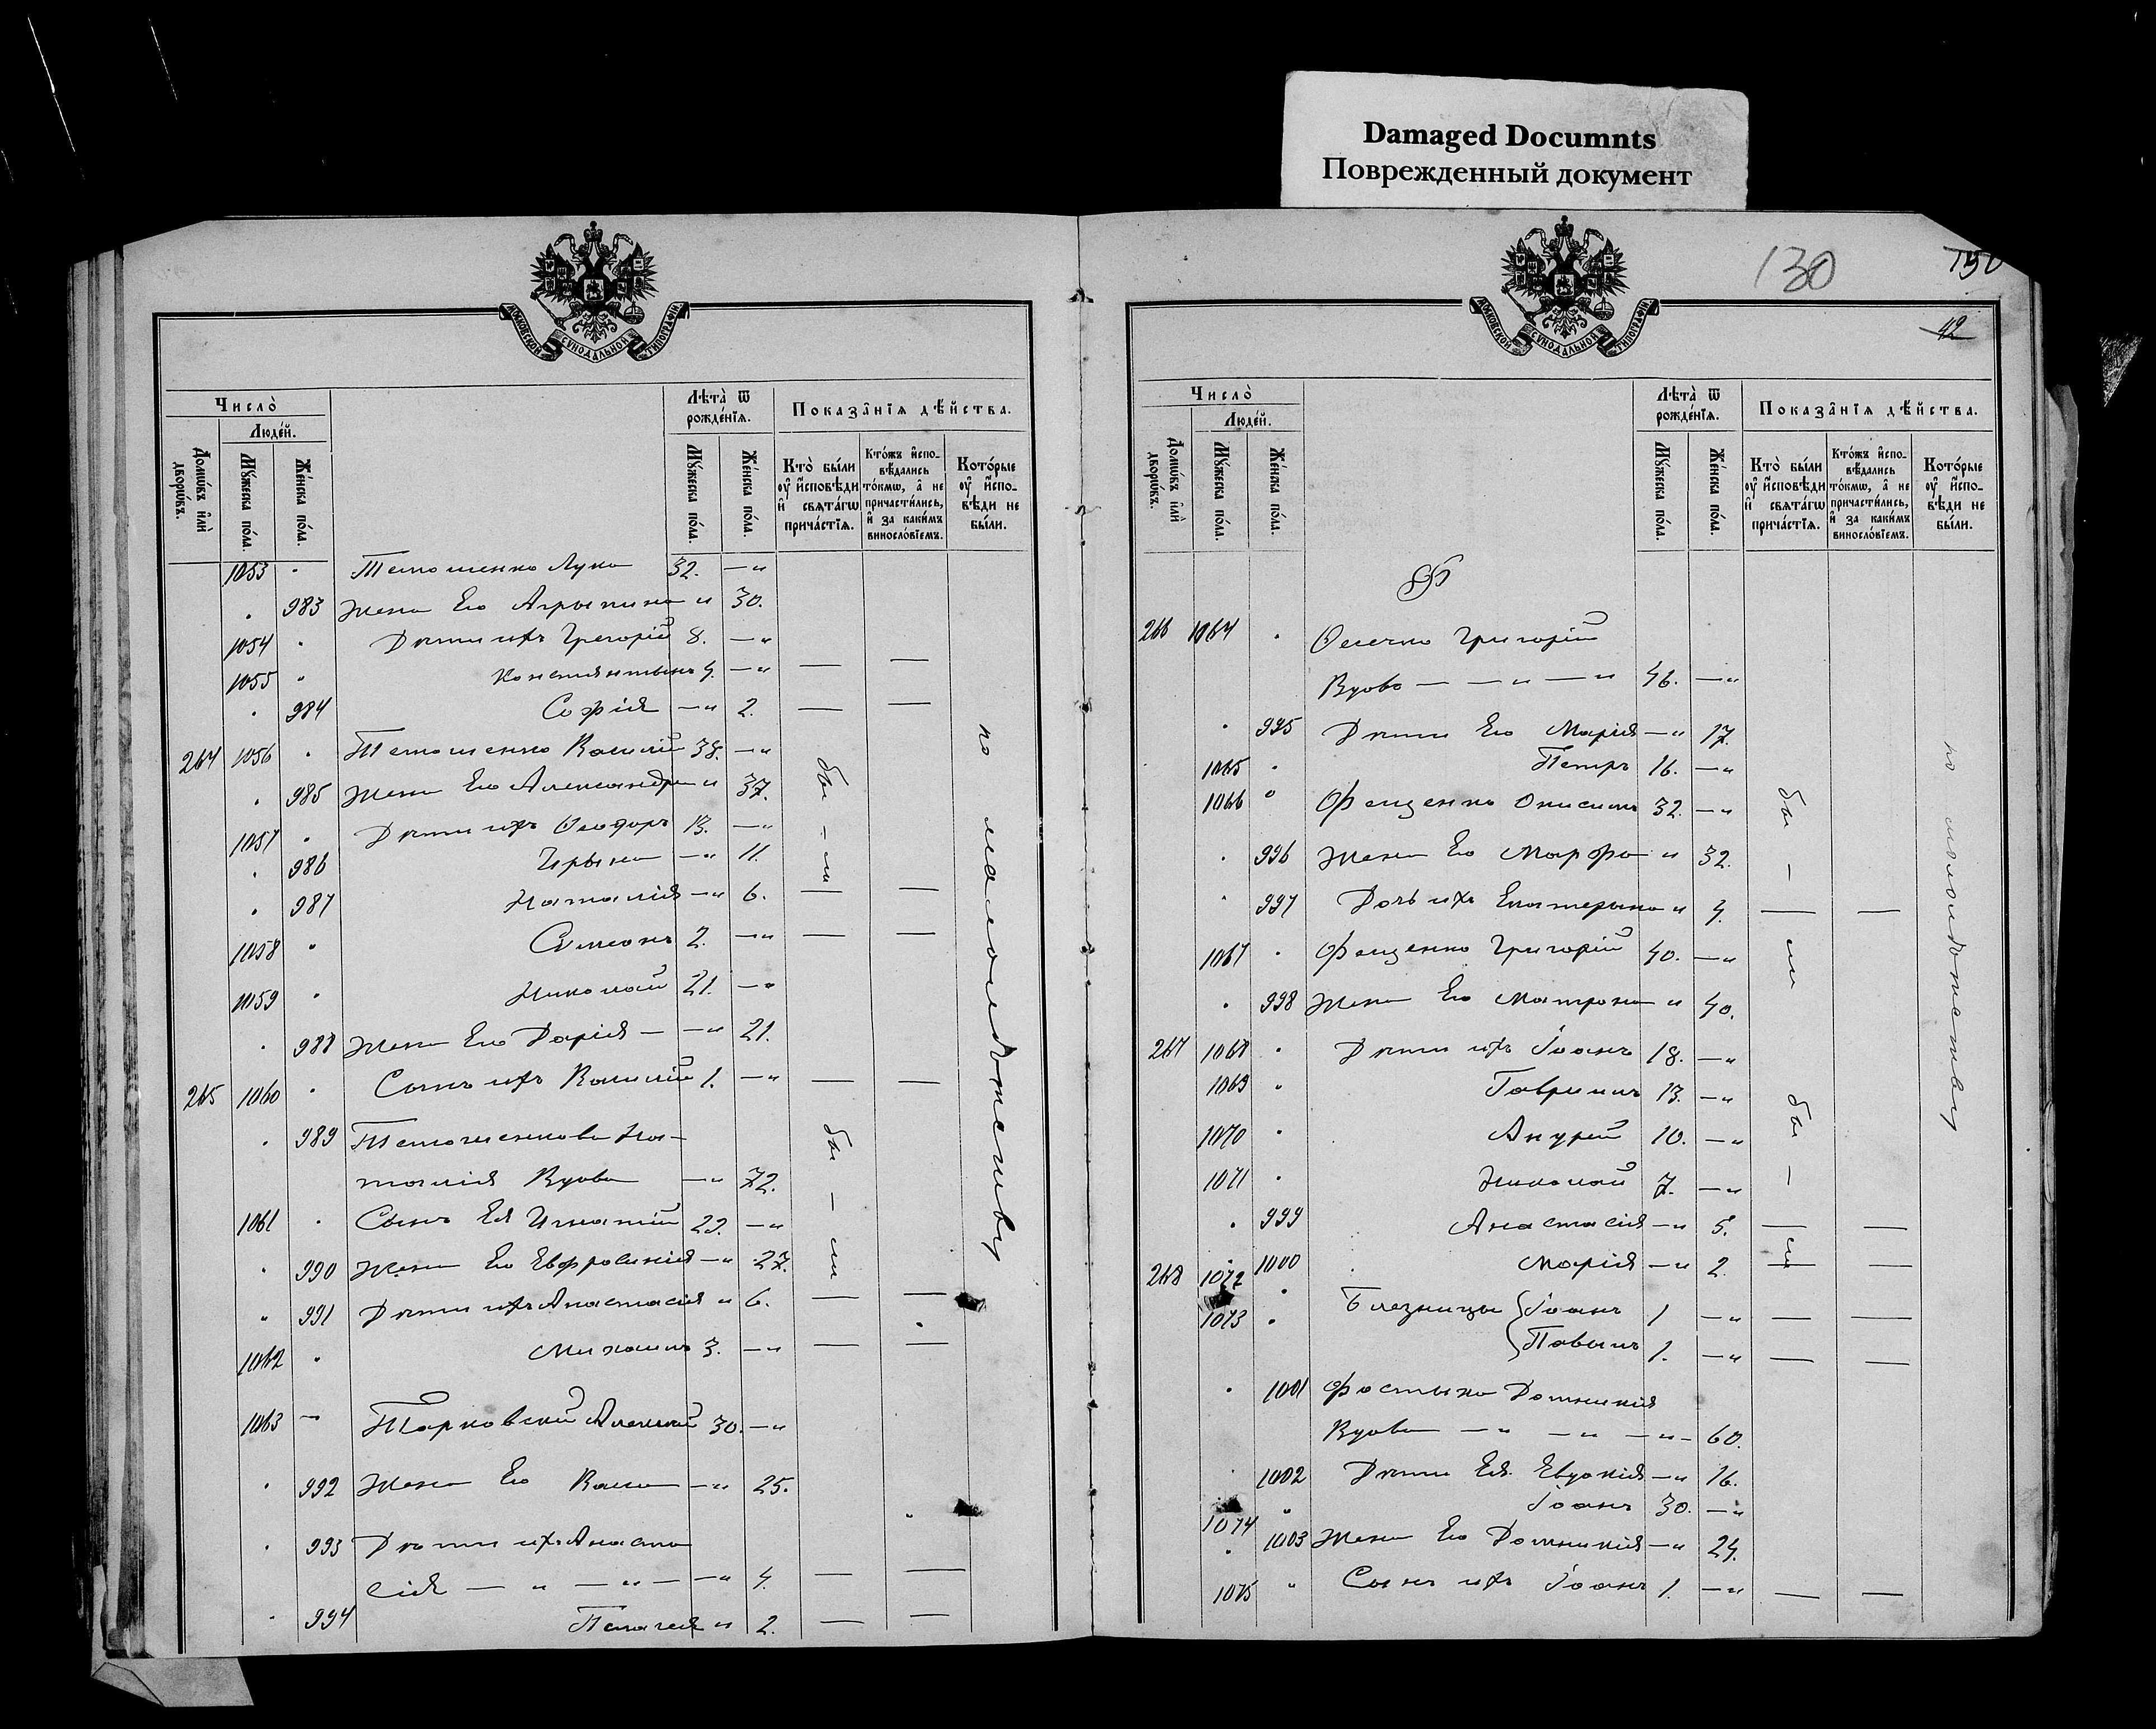 Damaged Documnts
Поврежденный документ
МОСКОВСКОЙ СѴНОДАЛЬНОЙ ТИПОГРАФІИ
Число̀
Люде́й.
Домѡ́въ и҆лѝ дворѡ́въ.
Мꙋ́жеска по́ла.
Же́нска по́ла.
Лѣта̀ ѿ рожде́нїѧ.
Мꙋ́жеска по́ла.
Же́нска по́ла.
Показа̑нїѧ дѣ́йства.
Кто̀ бы́ли оу҆ и҆́сповѣди и҆ свѧта́гѡ прича́стїѧ.
Кто́жъ и҆спо-вѣ́дались то́кмѡ, а҆ не причасти́лись, и҆ за каки́мъ винносло́вїемъ.
Кото́рые оу҆ и҆́спо-вѣди не бы́ли.
1053 " Темошенко Лука 32. — "
" 983 Жена Его Агрыпина " 30.
1054 " Дѣти ихъ Григорій 8. — "
1055 " Константынъ 4. — " — —
" 984 Софія — " 2. — —
264 1056 " Темошенко Василій 38. — "
" 985 Жена Его Александра " 37.
1057 " Дѣти ихъ Ѳеодоръ 13. — "
" 986 Ирына — " 11.
" 987 Наталія — " 6. — —
1058 " Симеонъ 2. — " — —
1059 " Николай 21. — "
" 988 Жена Его Дарія — — " 21.
265 1060 " Сынъ ихъ Василій 1. — " — —
" 989 Темошенкова На-
талія Вдова — " 72.
1061 " Сынъ Ея Игнатій 29. — "
" 990 Жена Его Евфросинія — " 27.
" 991 Дѣти ихъ Анастасія " 6. — —
1062 " Михаилъ 3. — " — —
1063 — Тарковскій Алексій 30. — "
" 992 Жена Его Васса — " 25.
" 993 Дѣти ихъ Анаста
сія — " — " — — " 4. — —
" 994 Пелагея " 2. — —
бы – ли
бы – ли
по малолѣтству
130
42
МОСКОВСКОЙ СѴНОДАЛЬНОЙ ТИПОГРАФІИ
Число̀
Люде́й.
Домѡ́въ и҆лѝ дворѡ́въ.
Мꙋ́жеска по́ла.
Же́нска по́ла.
Лѣта̀ ѿ рожде́нїѧ.
Мꙋ́жеска по́ла.
Же́нска по́ла.
Показа̑нїѧ дѣ́йства.
Кто̀ бы́ли оу҆ и҆́сповѣди и҆ свѧта́гѡ прича́стїѧ.
Кто́жъ и҆спо-вѣ́дались то́кмѡ, а҆ не причасти́лись, и҆ за каки́мъ винносло́вїемъ.
Кото́рые оу҆ и҆́спо-вѣди не бы́ли.
Ф
266 1064 " Григорій
Вдовъ — — " — " 46. — "
" 995 Дѣти Его Марія — " 17.
1065 " Петръ 16. — "
1066 " Фещенко Онисимъ 32. — "
" 996 Жена Его Марфа " 32.
" 997 Дочь ихъ Екатерына " 4. — —
1067 " Фещенко Григорій 40. — "
" 998 Жена Его Матрона " 40.
267 1068 " Дѣти ихъ Іоанъ 18. — "
1069 " Гавриилъ 13. — "
1070 " Андрей 10. — "
1071 " Николай 7. — "
" 999 Анастасія — " 5. — —
" 1000 Марія — " 2. — —
268 1072 " Близницы { Іоанъ 1 — " — —
1073 " { Павелъ 1. — " — —
" 1001 Домникія
Вдова — " — " — " – 60.
" 1002 Дѣти Ея Евдокія — " 16.
1074 " Іоанъ 30. — "
" 1003 Жена Его Домникія — " 24.
1075 " Сынъ ихъ Іоанъ 1. — " — —
бы – ли
бы – ли
по малолѣтству